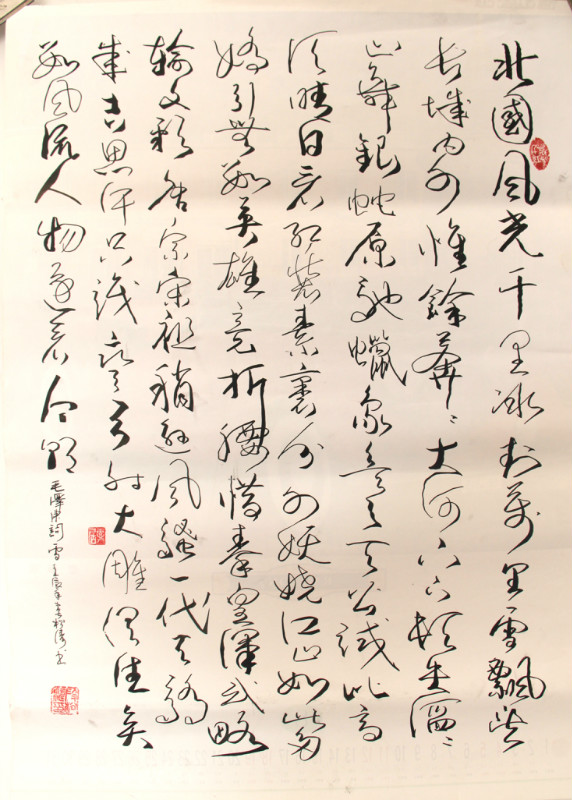 北國风光千里冰封萬里雪飄望
長城内外惟餘莽〻大河上下頓失滔〻
山舞銀蛇原馳蠟象欲與天公試比高
須晴日看紅裝素裹分外妖嬈江山如此多
嬌引無數英雄競折腰惜秦皇漢武略
輸文彩唐宗宋祖稍遜风騷一代天驕
成吉思汗只識彎弓射大雕俱往矣
數风流人物還看今朝
毛澤東詞雪壬辰年